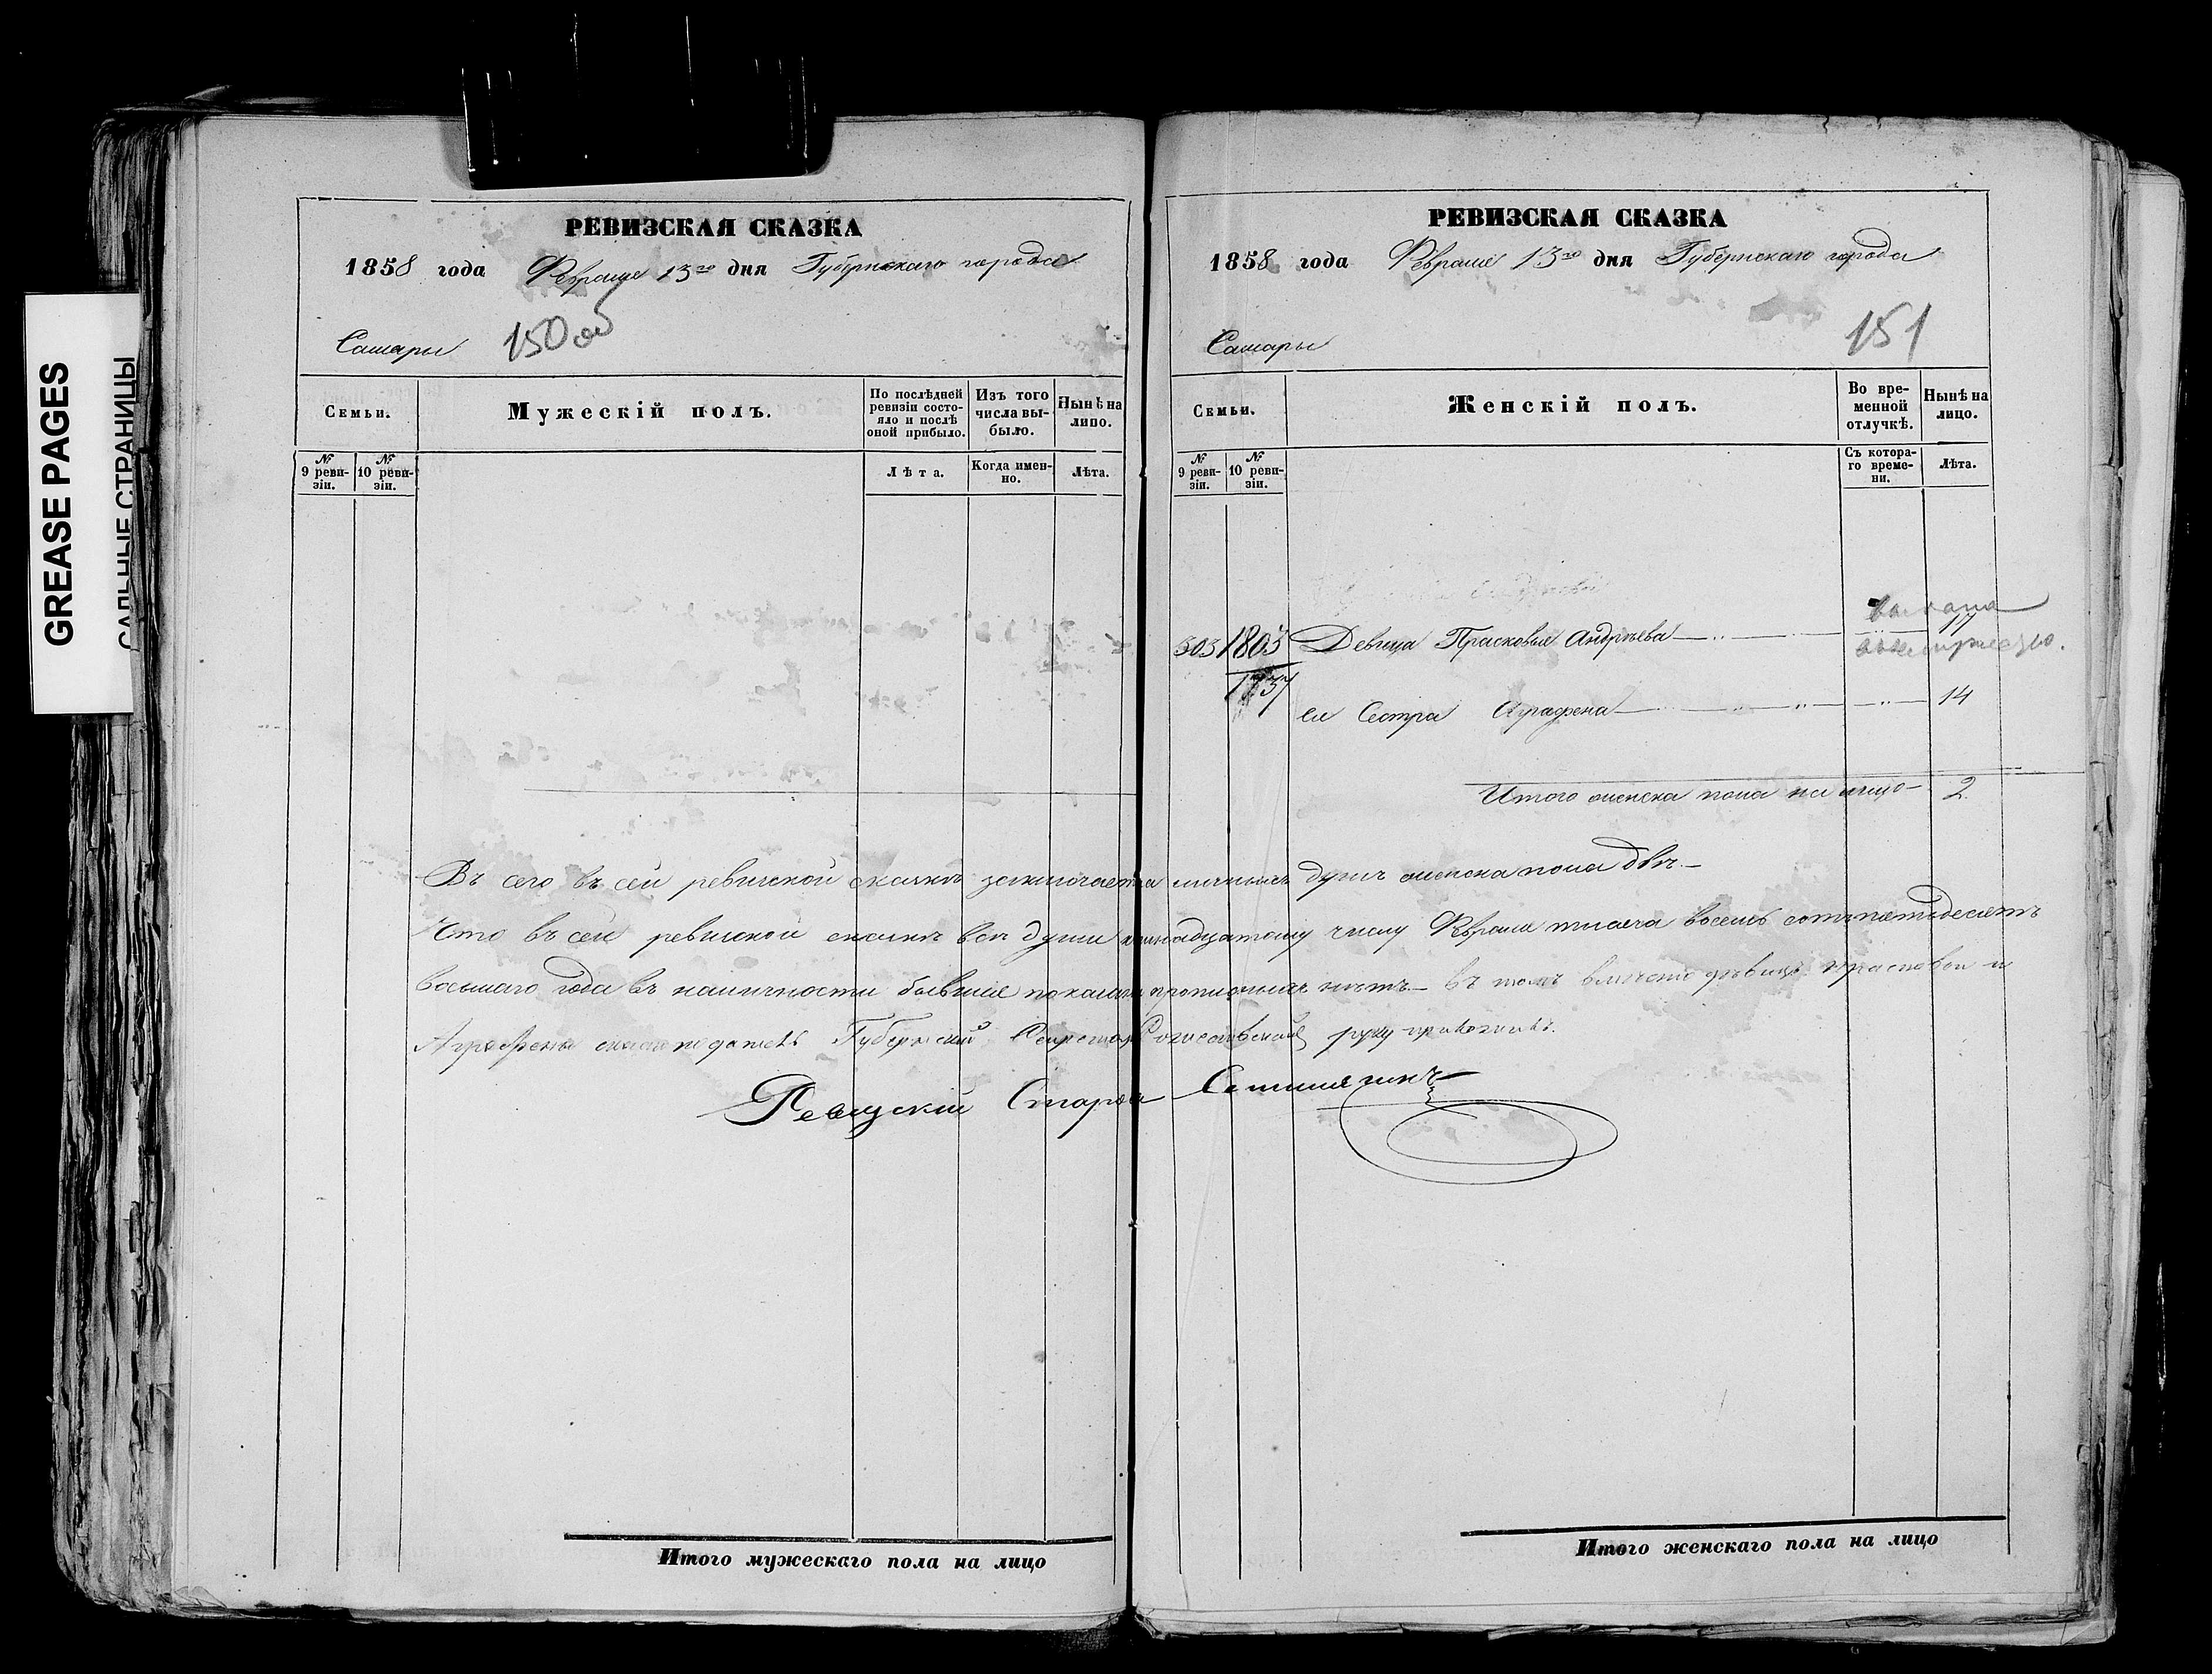 GREASE PAGES
САЛЬНЫЕ СТРАНИЦЫ
РЕВИЗСКАЯ СКАЗКА
1858 года Февраля 13го дня Губернскаго города
150 об
Самары
Семьи.
Мужескій полъ.
По послѣдней ревизіи состояло и послѣ оной прибыло.
Изъ того числа выбыло.
Нынѣ на лицо.
№ 9 ревизіи.
№ 10 ревизіи.
Лѣта.
Когда именно.
Лѣта.
РЕВИЗСКАЯ СКАЗКА
1858 года Февраля 13го дня Губернскаго города
151
Самары
Семьи.
Женскій полъ.
Во временной отлучкѣ.
Нынѣ на лицо.
№ 9 ревизіи.
№ 10 ревизіи.
Съ котораго времени.
Лѣта.
303 1803 Девица Прасковья Андрѣева 17
ея Сестра Аграфена 14
Итого женска пола на лицо 2
въ сей ревиской сказкѣ заключается душъ женска пола двѣ
Что въ сей ревиской сказкѣ всѣ души числу Февраля тысяча восемь сотъ пятьдесятъ
восьмаго года въ наличности бывшия показаны прописныхъ нѣтъ въ томъ вместо девицъ Прасковьи и
Аграфены Губернский Секретарь руку приложилъ.
Ревизскій Староста
Итого мужескаго пола на лицо
Итого женскаго пола на лицо